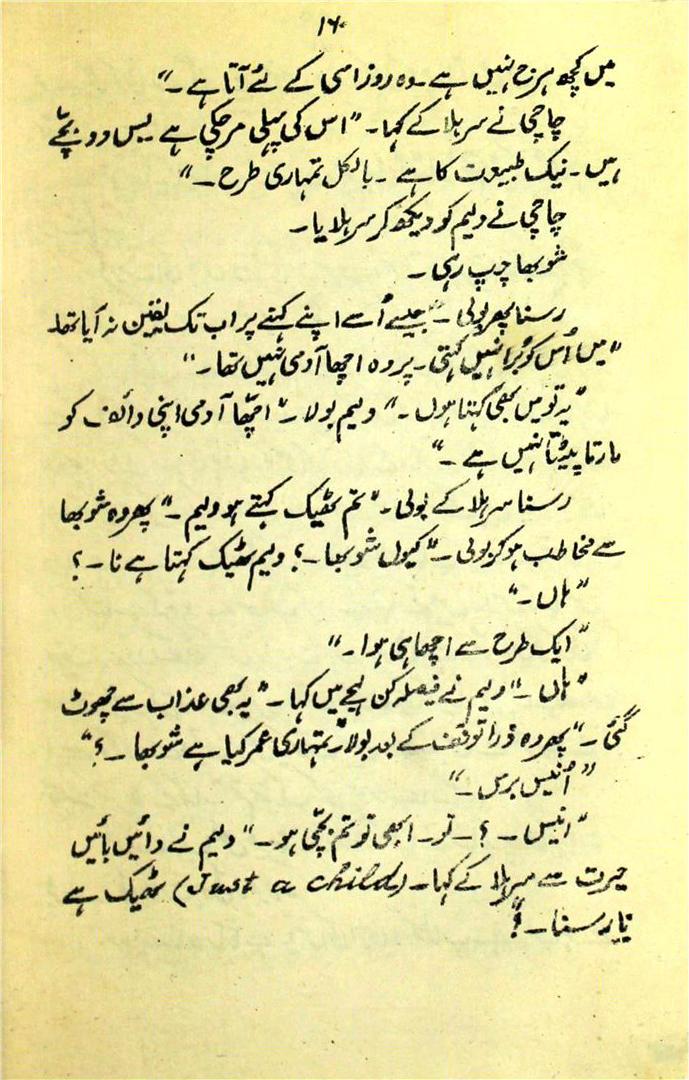 ۱۶۰
میں کچھ ہرج نہیں ہے۔ وہ روز اسی کے لئے آتا ہے۔"
چاچی نے سر ہلا کے کہا۔ "اس کی پہلی مر چکی ہے بس دو بچے
ہیں۔ نیک طبیعت کا ہے۔ بالکل تمہاری طرح۔"
چاچی نے ولیم کو دیکھ کر سر ہلایا۔
شوبھا چپ رہی۔
رسنا پھر بولی۔ جیسے اُسے اپنے کہنے پر اب تک یقین نہ آیا تھا۔
"میں اُس کو بُرا نہیں کہتی۔ پر وہ اچھا آدمی نہیں تھا۔"
"یہ تو میں بھی کہتا ہوں۔" ولیم بولا۔ "اچھّا آدمی اپنی وائف کو
مارتا پیٹتا نہیں ہے۔"
رسنا سر ہلا کے بولی۔ "تم ٹھیک کہتے ہو ولیم۔" پھر وہ شوبھا
سے مخاطب ہو کر بولی۔ "کیوں شوبھا۔؟ ولیم ٹھیک کہتا ہے نا۔؟
"ہاں۔"
"ایک طرح سے اچھا ہی ہوا۔"
"ہاں۔" ولیم نے فیصلہ کن لہجے میں کہا۔ "یہ بھی عذاب سے چھوٹ
گئی۔" پھر وہ ذرا توقف کے بعد بولا "تمہاری عمر کیا ہے شوبھا۔؟"
"اُنیس برس۔"
"انیس۔؟۔ تو۔ ابھی تو تم بچّی ہو۔" ولیم نے دائیں بائیں
حیرت سے سر ہلا کے کہا۔ (Just a child) ٹھیک ہے
نا رسنا۔؟"